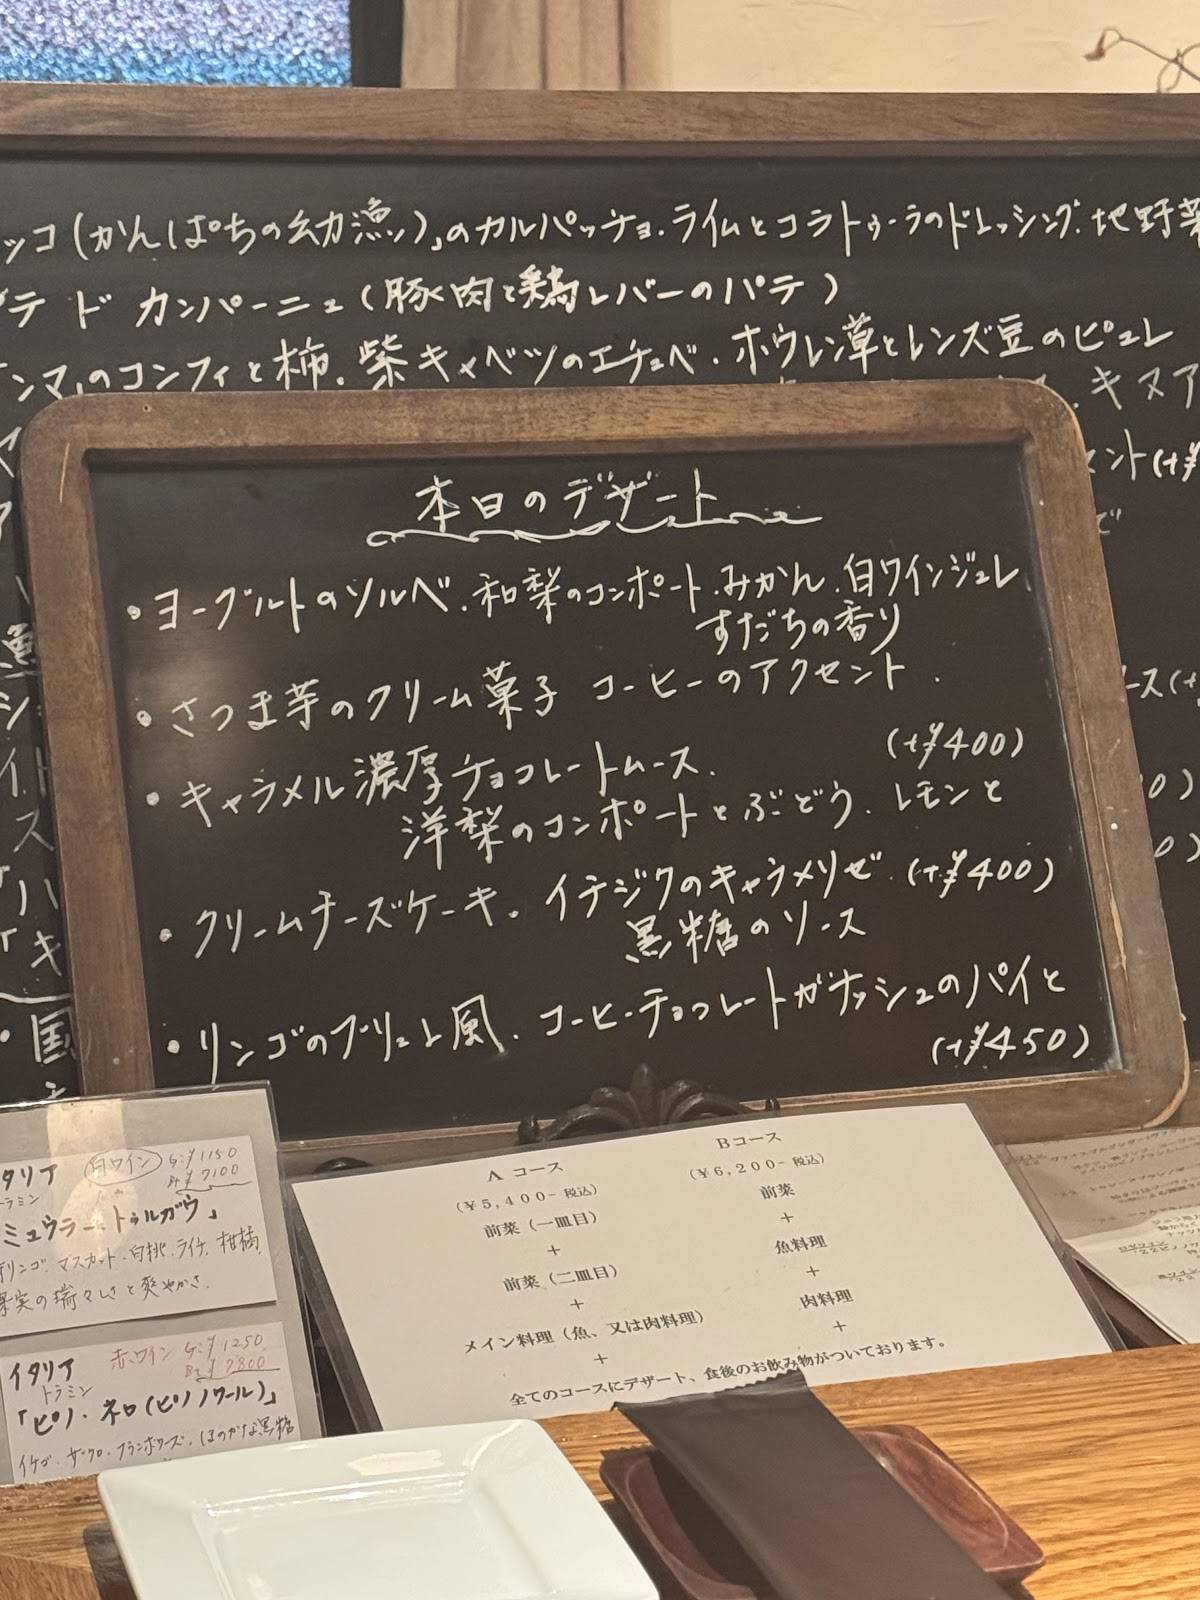 ッコ(かんぱちの幼漁)」のカルパッチョ.ライムとコラトゥーラのドレッシング.地野菜
テ ド カンパーニュ(豚肉と鶏レバーのパテ)
ンマ」のコンフィと柿.紫キャベツのエチュベ.ホウレン草とレンズ豆のピュレ
.キヌア
ント(+¥
本日のデザート
・ヨーグルトのソルベ.和梨のコンポート.みかん.白ワインジュレ
すだちの香り
・さつま芋のクリーム菓子 コーヒーのアクセント.
・キャラメル濃厚チョコレートムース. (+¥400)
洋梨のコンポートとぶどう.レモンと
・クリームチーズケーキ.イチジクのキャラメリゼ.(+¥400)
黒糖のソース
・リンゴのブリュレ風.コーヒーチョコレートガナッシュのパイと
(+¥450)
・国
ース(+
0)
0)
タリア 白ワイン G:¥1150
ラミン B:¥7100
ミュウラー・トゥルガウ」
リンゴ.マスカット.白桃.ライチ.柑橘
果実の瑞々しさと爽やかさ.
イタリア 赤ワイン G:¥1250
トラミン B:¥7800
「ピノ・ネロ(ピノノワール)」
イチゴ.ザクロ.フランボワーズ.ほのかな黒糖
A コース
(¥5,400-税込)
前菜(一皿目)
+
前菜(二皿目)
+
メイン料理(魚、又は肉料理)
+
Bコース
(¥6,200-税込)
前菜
+
魚料理
+
肉料理
+
全てのコースにデザート、食後のお飲み物がついております。